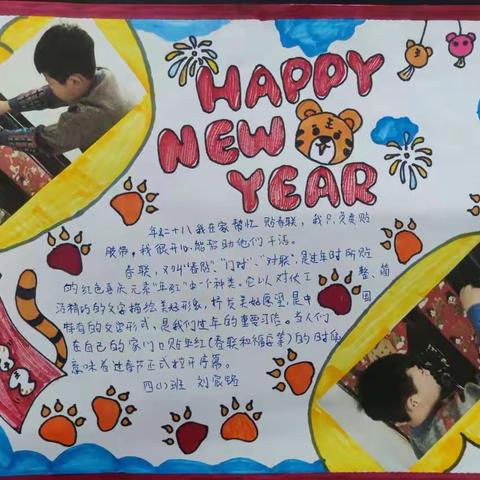 HAPPY
NEW
YEAR
年二十八我在家帮忙贴春联，我只负责贴
胶带，我很开心能帮助他们干活。
春联，又叫"春贴"、"门对"、"对联"，是过年时所贴
的红色喜庆元素"年红"中一个种类。它以对仗工整、简
洁精巧的文字描绘美好形象，抒发美好愿望，是中国
特有的文学形式，是我们过年的重要习俗。当人们
在自己的家门口贴年红(春联和福字等)的时候
意味着过春节正式拉开序幕。
四(1)班 刘宸